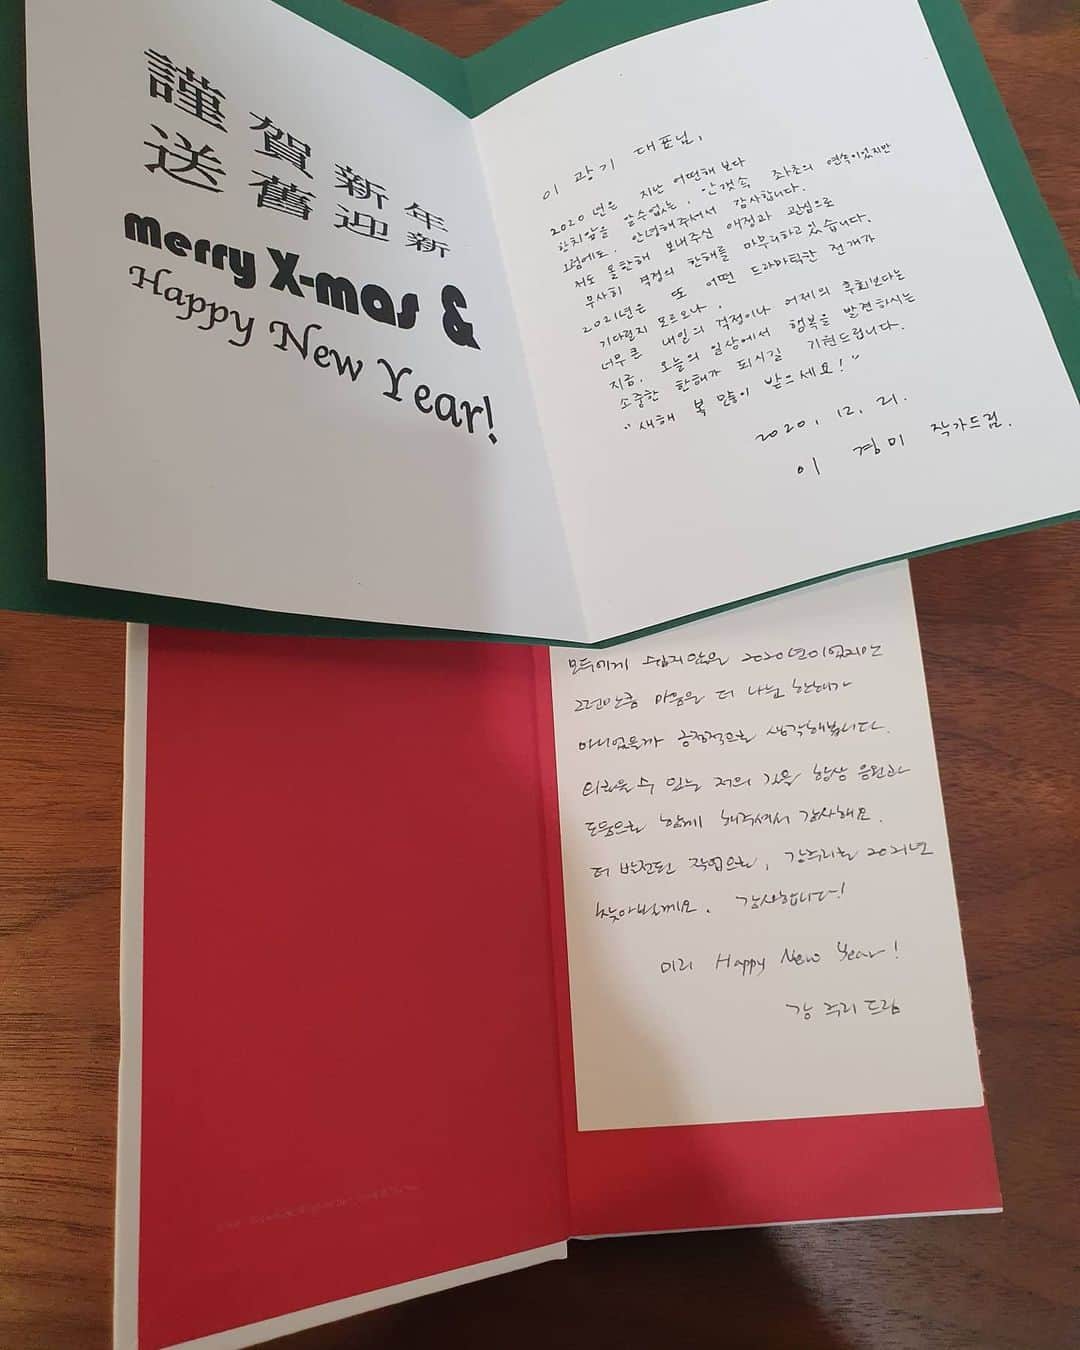 謹賀新年
送舊迎新
merry X-mas &
Happy New Year!
이 광기 대표님,
2020년은 지난 어떤해 보다
한치앞을 알수없는, 안갯속 좌초의 연속이었지만
그럼에도, 안녕해주셔서 감사합니다.
저도 올한해 보내주신 애정과 관심으로
무사히 격정의 한해를 마무리하고 있습니다.
2021년은 또 어떤 드라마틱한 전개가
기다릴지 모르오나,
너무큰 내일의 걱정이나 어제의 후회보다는
지금, 오늘의 일상에서 행복을 발견하시는
소중한 한해가 되시길 기원드립니다.
"새해 복 많이 받으세요!"
2020. 12. 21.
이 경미 작가드림.
모두에게 쉽지않은 2020년이었지만
그런만큼 마음을 더 나눈 한해가
아니었을까 긍정적으로 생각해봅니다.
외로울 수 있는 저의 길을 항상 응원과
도움으로 함께 해주셔서 감사해요.
더 발전된 작업으로, 강주리는 2021년
찾아뵐게요. 감사합니다!
미리 Happy New Year!
강 주리 드림